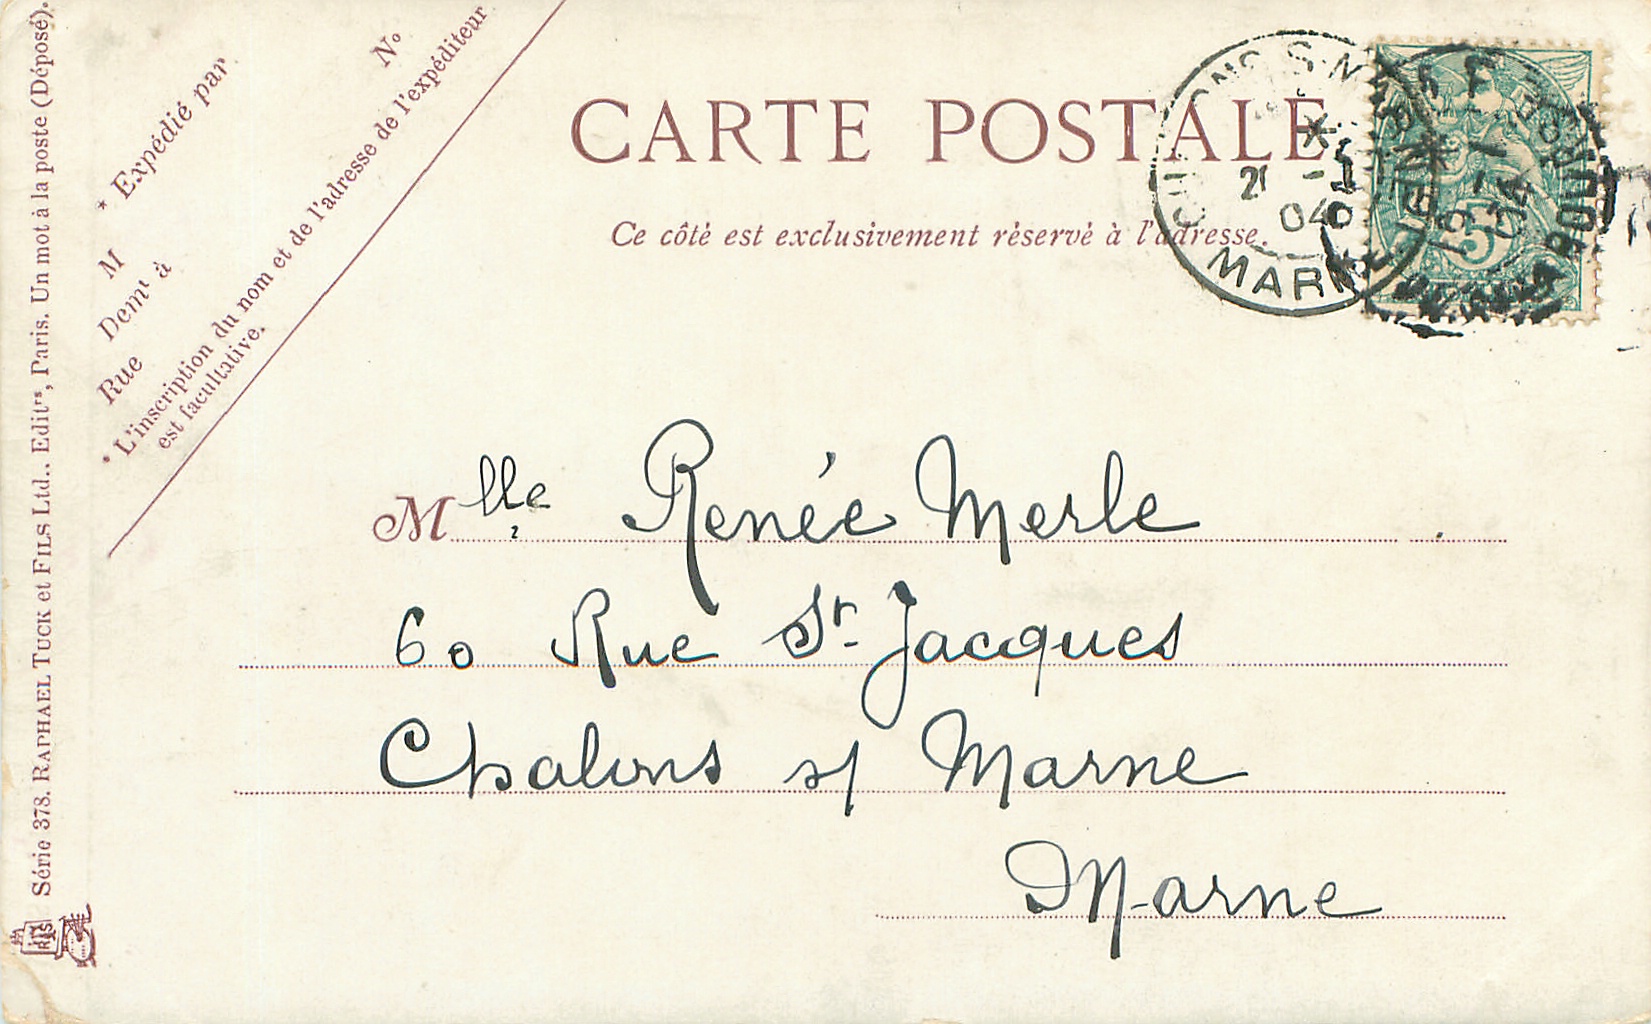 CARTE POSTALE
Ce côté est exclusivement réservé à l'adresse.
* Expédié par
M
Demt à
Rue
No
* L'inscription du nom et de l'adresse de l'expéditeur
est facultative.
Série 378. RAPHAEL TUCK et FILS Ltd., Editrs, Paris. Un mot à la poste (Déposé).
Mlle Renée Merle
60 Rue St. Jacques
Chalons s/ Marne
Marne
S-MARNE
MARNE
04
5
04